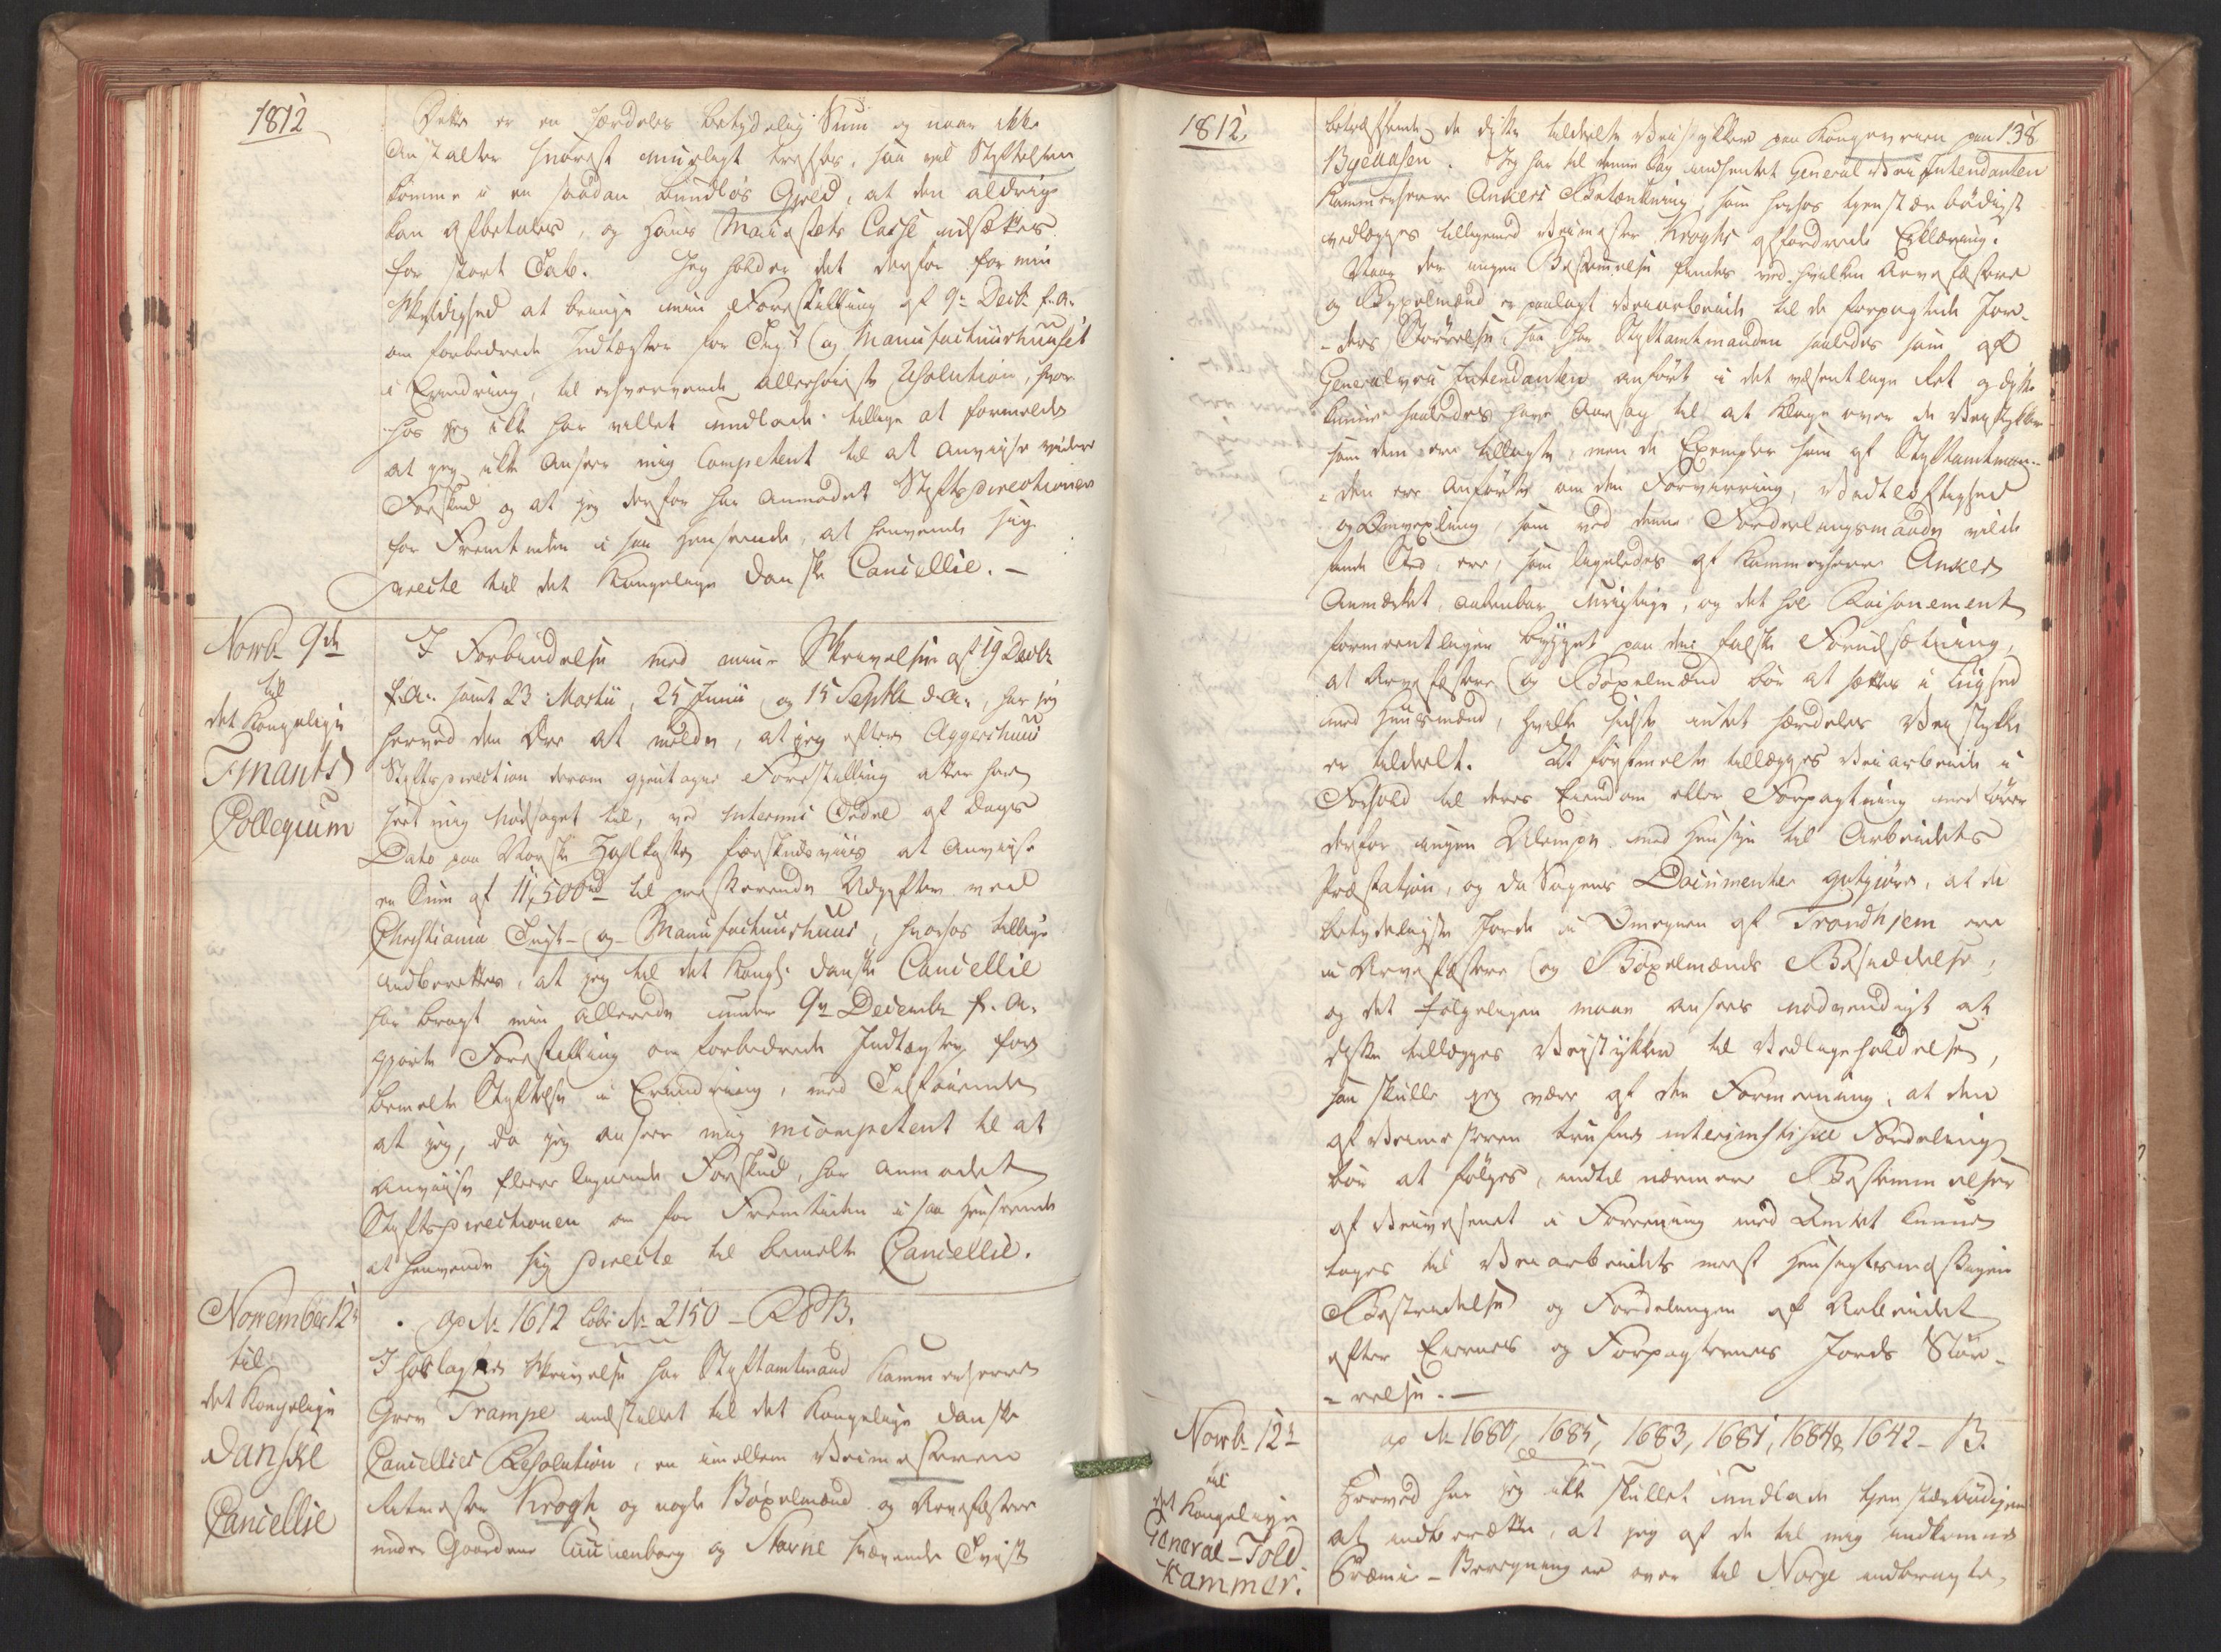 1812
Dette er en særdeles betydelig Sum og naar ikke
Anstalter snarest mueligt træffes, saa vil Stiftelsen
komme i en saadan bundløs Gjeld, at den aldrig
kan afbetales, og Hans Majestets Casse udsættes
for stort Tab. Jeg holder det derfor for min
Skyldighed at bringe min Forestilling af 9de Decbr f. A.
om forbedrede Indtægter for Tugt og Manufacturhuuset
i Erindring, til erhvervende allerhøieste Resolution, hvor-
hos jeg ikke har villet undlade tillige at formelde
at jeg ikke anseer mig Competent til at anviise videre
Forskud og at jeg derfor har anmodet Stiftsdirectionen
for Fremtiden i saa Henseende, at henvende sig
directe til det Kongelige danske Cancellie. -
Novbr 9de
til
det Kongelige
Finants
Collegium
I Forbindelse med mine Skrivelser af 19 Decbr
f. A. samt 23 Martii, 25 Junii og 15 Septbr d. A., har jeg
herved den Ære at melde, at jeg efter Aggershuus
Stiftsdirection derom gjentagne Forestilling atter har
seet mig nødsaget til, ved Interims Ordre af Dags
Dato paa Norske Zahlkasse forskudsviis at anviise
en Sum af 11,500 rd til præsterende Udgifter ved
Christiania Tugt- og Manufacturhuus, hvorhos tillige
indberettes, at jeg til det Kongl. danske Cancellie
har bragt min allerede under 9de Decembr f. A.
gjorte Forestilling om forbedrede Indtægter for
bemelte Stiftelse i Erindring, med Tilføiende
at jeg, da jeg anseer mig incompetent til at
anviise flere lignende Forskud, har anmodet
Stiftsdirectionen om for Fremtiden i saa Henseende
at henvende sig directe til bemelte Cancellie.
November 12te
til
det Kongelige
danske
Cancellie
ap No 1612 No 2150 - B.
I hoslagte Skrivelse har Stiftamtmand Kammerherre
Grev Trampe indstillet til det Kongelige danske
Cancellies Resolution, en imellem Veimesteren
Ritmester Krogh og nogle Bøxelmænd og Arvefæstere
under Gaardene og Stavne svævende Tvist
1812.
138
betræffende de disse tildeelte Veistykker paa Kongeveien paa
Byeaasen. Jeg har til denne Sag indhentet General Vei Intendanten
Kammerherre Ankers Betænkning, som herhos tjenstærbødigst
vedlægges tilligemed Veimester Kroghs affordrede Erklæring.
Naar der ingen Bestemmelse findes ved hvilken Arvefæstere
og Bøxelmænd er paalagt Veiarbeide til de forpagtede Jor-
- ders Størrelse, saa har Stiftamtmanden saaledes som af
Generalvei Intendanten anført i det væsentlige Ret og disse
kunne saaledes have Aarsag til at klage over de Veistykker
som dem ere tillagte, men de Exempler som af Stiftamtman-
- den ere anførte om den Forvirring, Vidtløftighed
og Omvexling, som ved denne Fordeelingsmaade vilde
finde Sted, ere, som ligeledes af Kammerherre Anker
Anmærket, aabenbar urigtige, og det hele Raisonement
formeentligen bygget paa den falske Forudsætning,
at Arvefæstere og Bøxelmænd bør at sættes i Liighed
med Huusmænd, hvilke sidste intet særdeles Veistykke
er tildeelt. At førstmelte tillægges Veiarbeide i
Forhold til deres Eiendom eller Forpagtning medfører
derfor ingen Ulempe med Hensyn til Arbeidets
Præstation, og da Sagens Documenter godtgiøre, at de
betydeligste Jorde i Omegnen af Trondhjem ere
i Arvefæstere og Bøxelmænds Besiddelse,
og det følgeligen maae ansees nødvendigt at
disse tillægges Veistykker til Vedligeholdelse,
saa skulle jeg være af den Formeening, at den
af Veimesteren trufne interimistiske Fordeling
bør at følges, indtil nærmere Bestemmelser
af Veivæsenet i Forening med Amtet kunne
tages til Veiarbeidets meest Hensigtsmæssigen
Bestridelse og Fordelingen af Arbeidet
efter Eiernes og Forpagternes Jords Stør-
- relse. -
Novbr 12te
til
det Kongelige
General-Told
Kammer.
ap No 1680, 1685, 1683, 1681, 1684 & 1642 - B.
Herved har jeg ikke skullet undlade tjenstærbødigen
at indberette, at jeg af de til mig indkomne
Præmie-Beregninger over til Norge indbragte